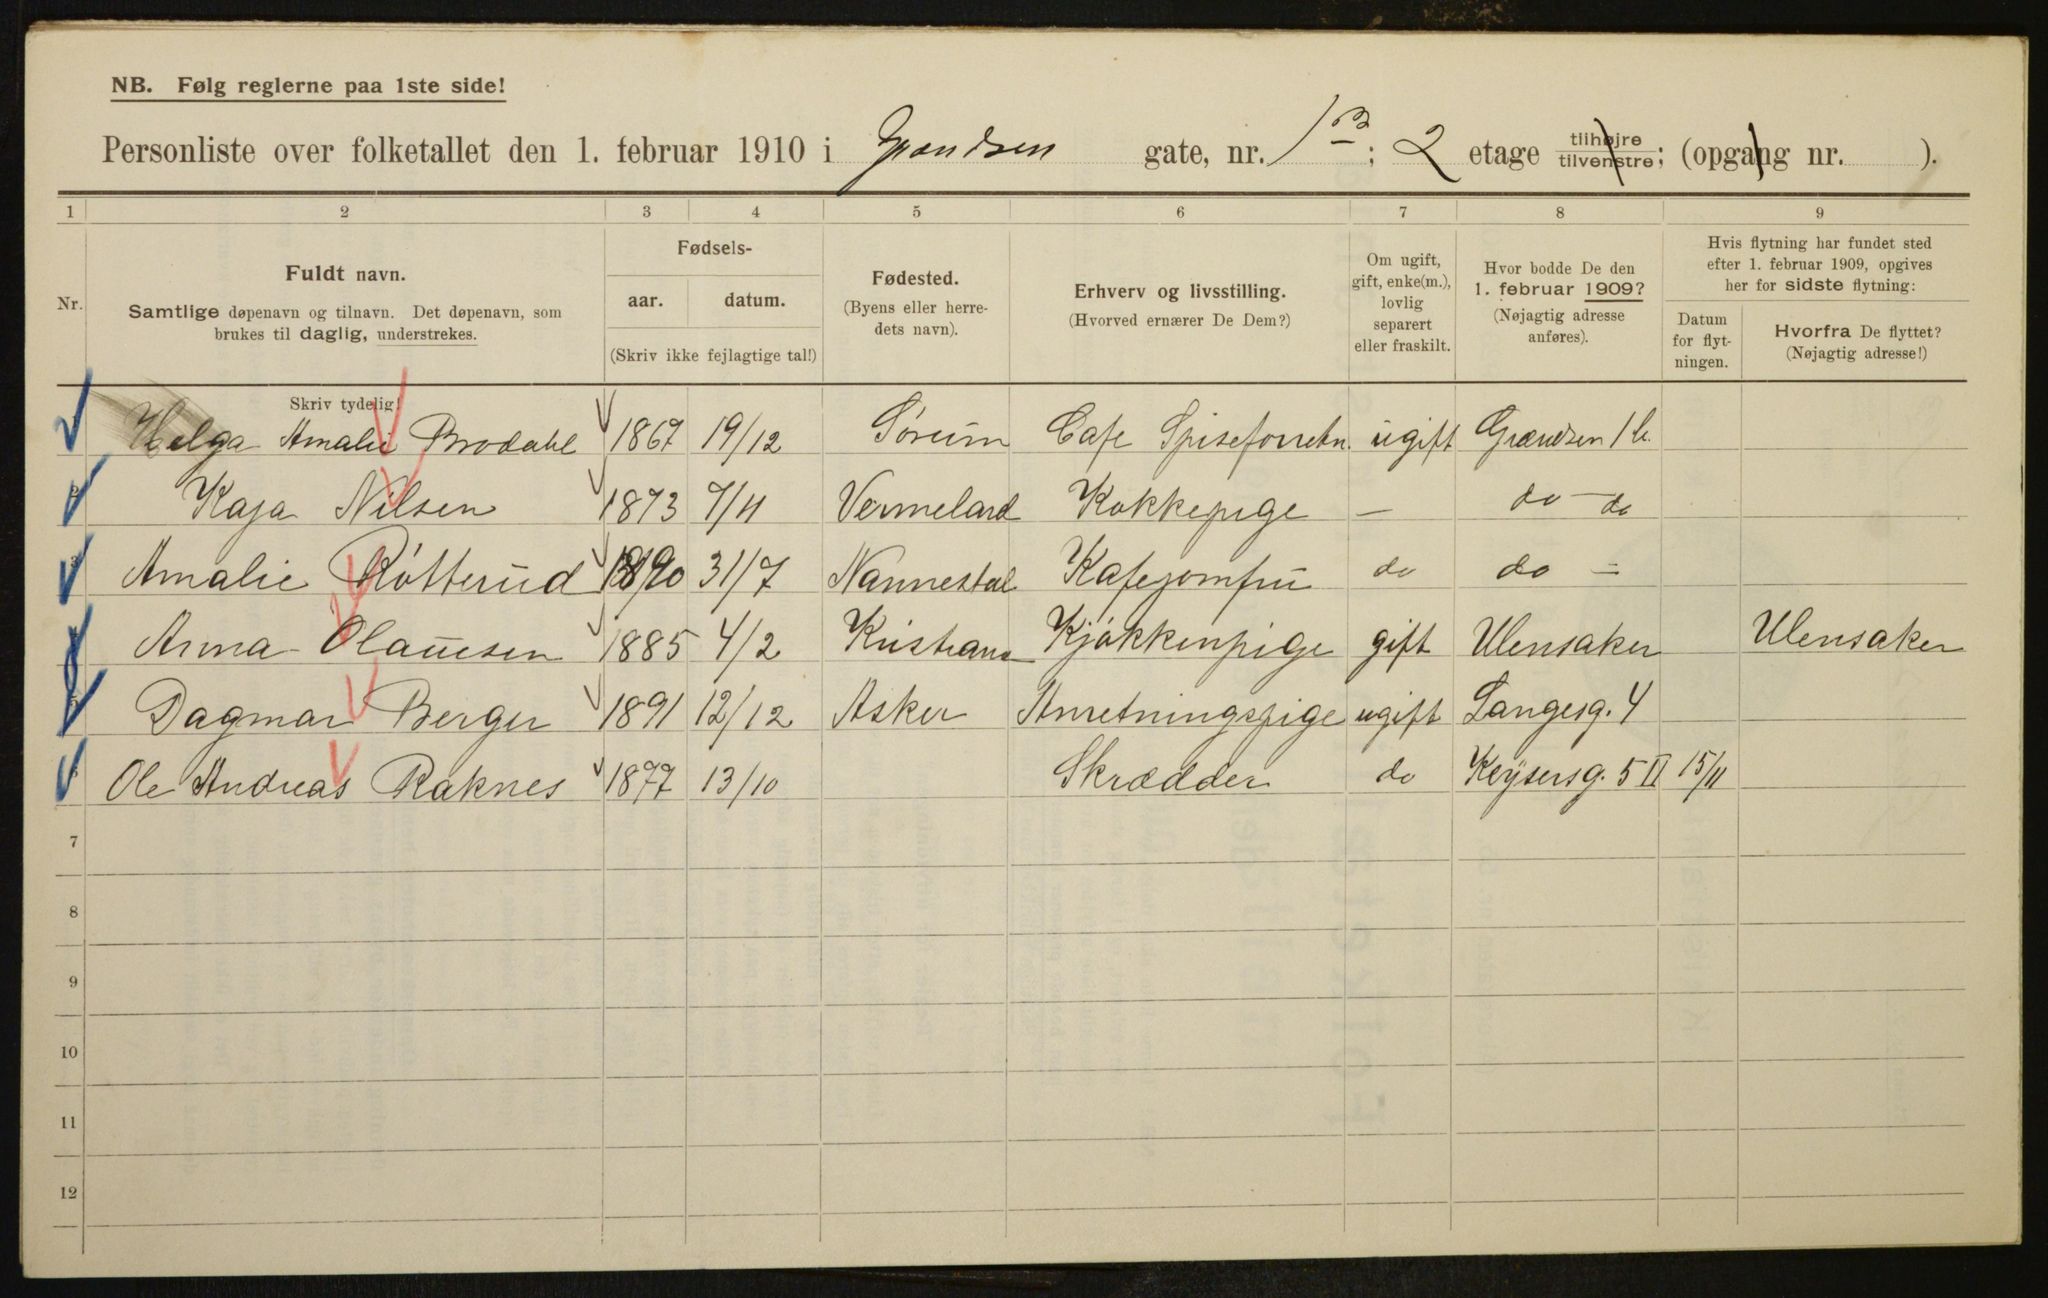 NB. Følg reglerne paa 1ste side!
Personliste over folketallet den 1. februar 1910 i Grændsen gate, nr. 1 B; 2 etage tilhøjre tilvenstre; (opgang nr. ).
1 2 3 4 5 6 7 8 9
Nr.
Fuldt navn.
Samtlige døpenavn og tilnavn. Det døpenavn, som
brukes til daglig, understrekes.
Fødsels-
aar. datum.
(Skriv ikke fejlagtige tal!)
Fødested.
(Byens eller herre-
dets navn).
Erhverv og livsstilling.
(Hvorved ernærer De Dem?)
Om ugift,
gift, enke(m.),
lovlig
separert
eller fraskilt.
Hvor bodde De den
1. februar 1909?
(Nøjagtig adresse
anføres).
Hvis flytning har fundet sted
efter 1. februar 1909, opgives
her for sidste flytning:
Datum
for flyt-
ningen.
Hvorfra De flyttet?
(Nøjagtig adresse!)
Skriv tydelig!
Helga Amalie Brodahl 1867 19/12 Sørum Cafe Spiseforretn. ugift Grændsen 1 b.
Kaja Nilsen 1873 7/11 Vermeland Kokkepige — do — do
3 Amalie Røtterud 1890 31/7 Nannestad Kafejomfru do do —
Anna Olaussen 1885 4/2 Kristiania Kjøkkenpige gift Ulensaker Ulensaker
Dagmar Berger 1891 12/12 Asker Anretningspige ugift Langesg. 4
Ole Andreas Raknes 1877 13/10 Skrædder do Keysersg. 5 II 15/11
7
8
9
10
11
12